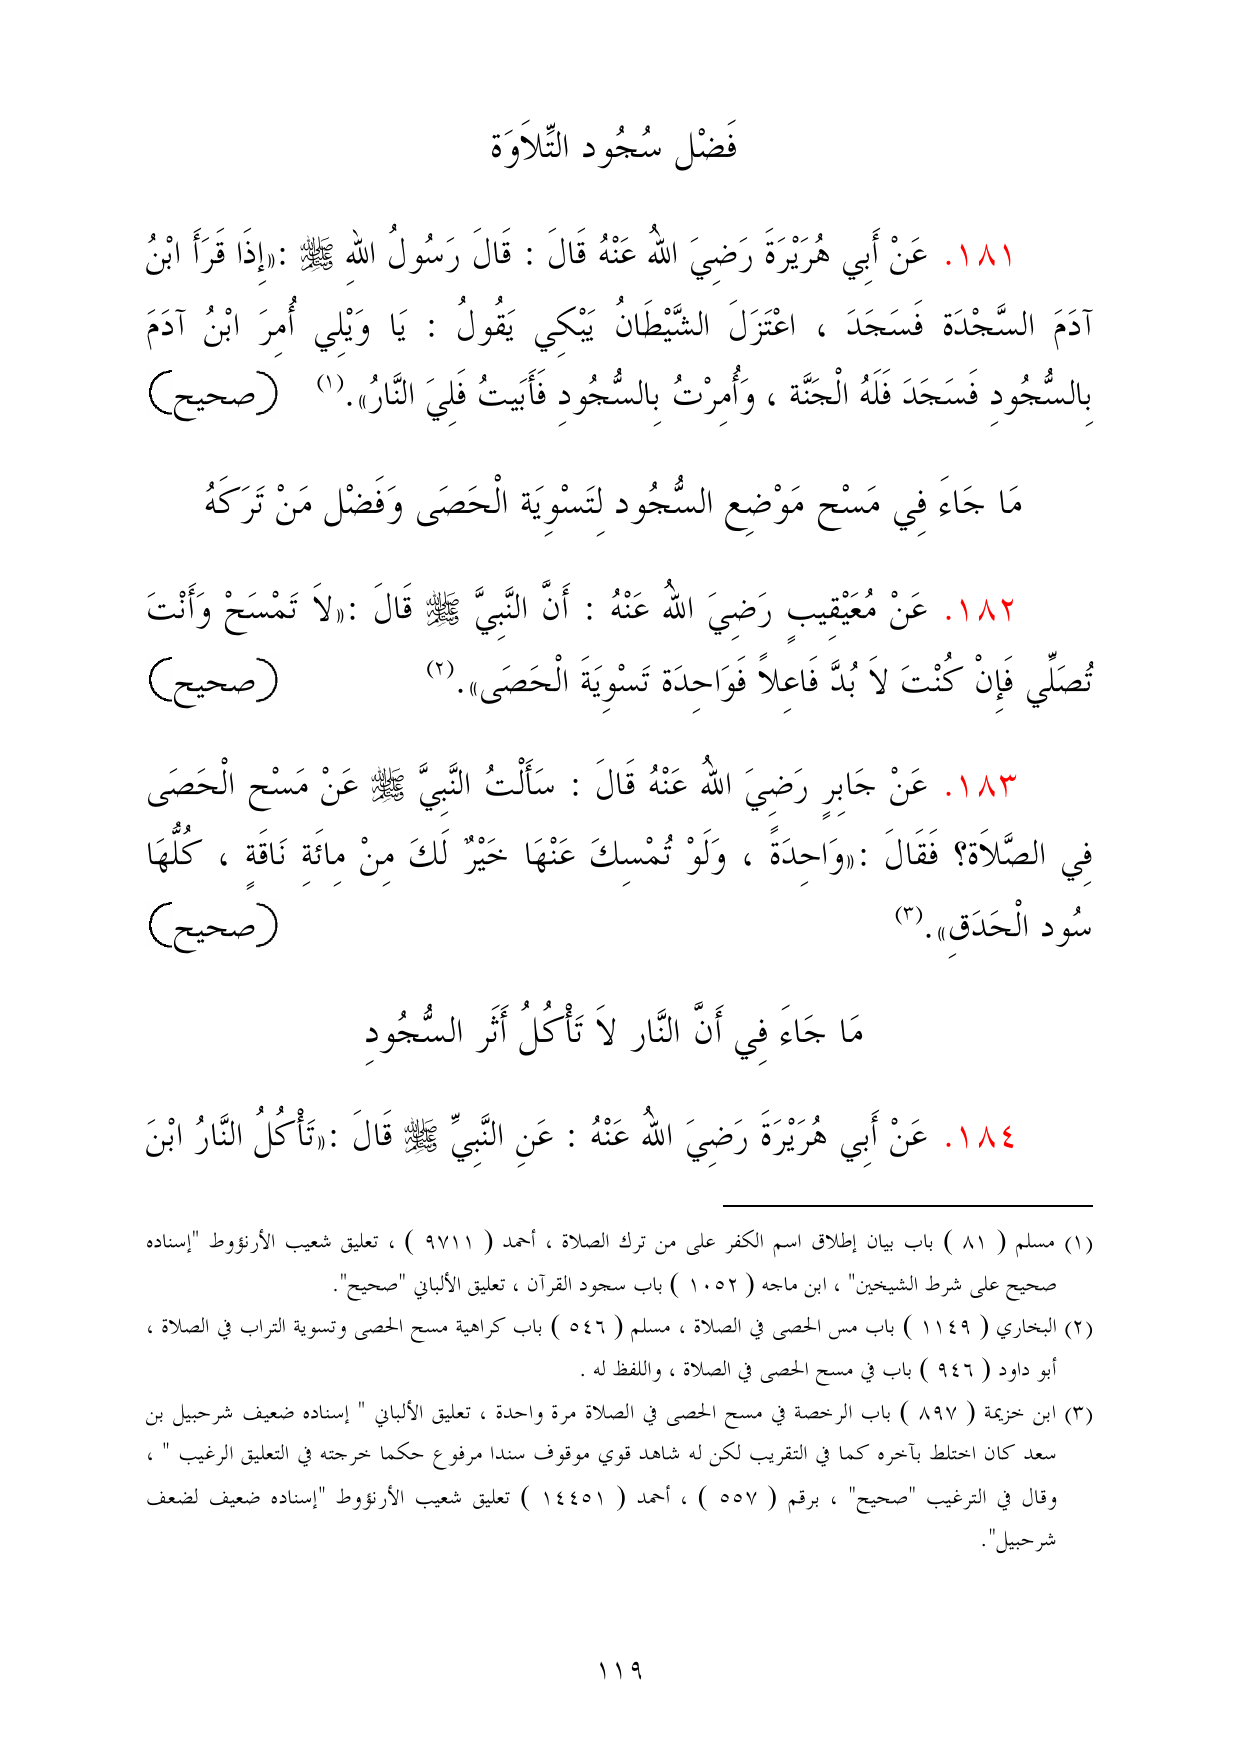 فَضْل سُجُود التِّلَاوَة
١٨١. عَنْ أَبِي هُرَيْرَةَ رَضِيَ اللهُ عَنْهُ قَالَ : قَالَ رَسُولُ اللهِ ﷺ :«إِذَا قَرَأَ ابْنُ
آدَمَ السَّجْدَة فَسَجَدَ ، اعْتَزَلَ الشَّيْطَانُ يَبْكِي يَقُولُ : يَا وَيْلِي أُمِرَ ابْنُ آدَمَ
بِالسُّجُودِ فَسَجَدَ فَلَهُ الْجَنَّة ، وَأُمِرْتُ بِالسُّجُودِ فَأَبَيتُ فَلِيَ النَّارُ».(١) (صحيح)
مَا جَاءَ فِي مَسْح مَوْضِع السُّجُود لِتَسْوِيَة الْحَصَى وَفَضْل مَنْ تَرَكَهُ
١٨٢. عَنْ مُعَيْقِيبٍ رَضِيَ اللهُ عَنْهُ : أَنَّ النَّبِيَّ ﷺ قَالَ :«لاَ تَمْسَحْ وَأَنْتَ
تُصَلِّي فَإِنْ كُنْتَ لاَ بُدَّ فَاعِلاً فَوَاحِدَة تَسْوِيَةَ الْحَصَى».(٢) (صحيح)
١٨٣. عَنْ جَابِرٍ رَضِيَ اللهُ عَنْهُ قَالَ : سَأَلْتُ النَّبِيَّ ﷺ عَنْ مَسْح الْحَصَى
فِي الصَّلَاة؟ فَقَالَ :«وَاحِدَةً ، وَلَوْ تُمْسِكَ عَنْهَا خَيْرٌ لَكَ مِنْ مِائَةِ نَاقَةٍ ، كُلُّهَا
سُود الْحَدَقِ».(٣) (صحيح)
مَا جَاءَ فِي أَنَّ النَّار لاَ تَأْكُلُ أَثَر السُّجُودِ
١٨٤. عَنْ أَبِي هُرَيْرَةَ رَضِيَ اللهُ عَنْهُ : عَنِ النَّبِيِّ ﷺ قَالَ :«تَأْكُلُ النَّارُ ابْنَ
(١) مسلم ( ٨١ ) باب بيان إطلاق اسم الكفر على من ترك الصلاة ، أحمد ( ٩٧١١ ) ، تعليق شعيب الأرنؤوط "إسناده
صحيح على شرط الشيخين" ، ابن ماجه ( ١٠٥٢ ) باب سجود القرآن ، تعليق الألباني "صحيح".
(٢) البخاري ( ١١٤٩ ) باب مس الحصى في الصلاة ، مسلم ( ٥٤٦ ) باب كراهية مسح الحصى وتسوية التراب في الصلاة ،
أبو داود ( ٩٤٦ ) باب في مسح الحصى في الصلاة ، واللفظ له .
(٣) ابن خزيمة ( ٨٩٧ ) باب الرخصة في مسح الحصى في الصلاة مرة واحدة ، تعليق الألباني " إسناده ضعيف شرحبيل بن
سعد كان اختلط بآخره كما في التقريب لكن له شاهد قوي موقوف سندا مرفوع حكما خرجته في التعليق الرغيب " ،
وقال في الترغيب "صحيح" ، برقم ( ٥٥٧ ) ، أحمد ( ١٤٤٥١ ) تعليق شعيب الأرنؤوط "إسناده ضعيف لضعف
شرحبيل".
١١٩